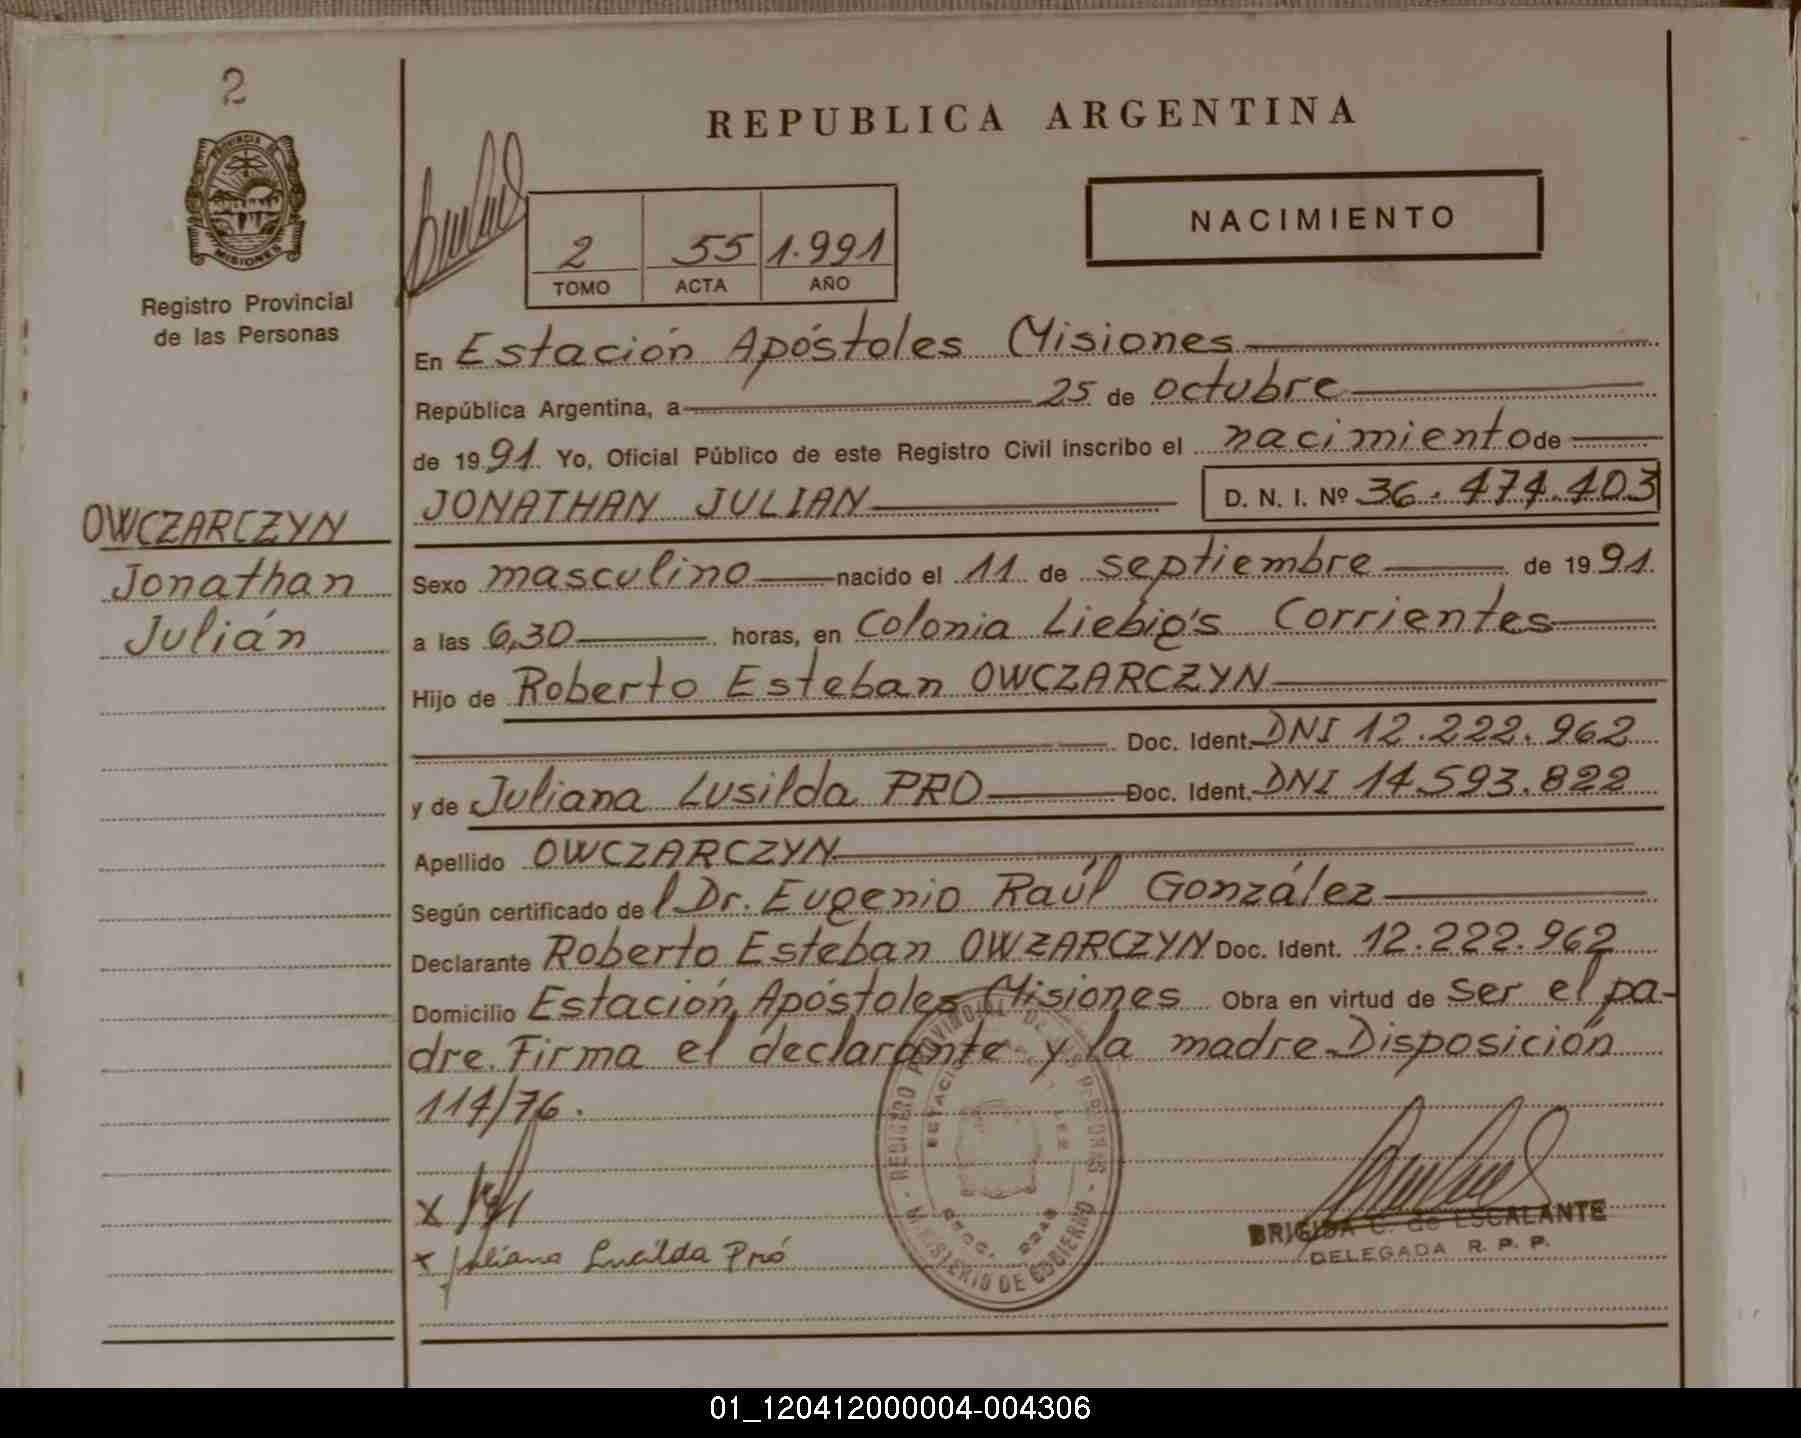 2
PROVINCIA DE
MISIONES
Registro Provincial
de las Personas
REPUBLICA ARGENTINA
NACIMIENTO
2 55 1.991
TOMO ACTA AÑO
En Estación Apóstoles Misiones
República Argentina, a 25 de octubre
de 1991. Yo, Oficial Público de este Registro Civil inscribo el nacimiento de
JONATHAN JULIAN D. N. I. Nº 36.474.403
OWCZARCZYN
Jonathan
Julián
Sexo masculino nacido el 11 de septiembre de 1991.
a las 6,30 horas, en Colonia Liebig's Corrientes
Hijo de Roberto Esteban OWCZARCZYN
Doc. Ident. DNI 12.222.962
y de Juliana Lusilda PRO Doc. Ident. DNI 14.593.822
Apellido OWCZARCZYN
Según certificado del Dr. Eugenio Raúl González
Declarante Roberto Esteban OWZARCZYN Doc. Ident. 12.222.962
Domicilio Estación Apóstoles Misiones Obra en virtud de ser el pa-
dre. Firma el declarante y la madre. Disposición
114/76.
x
x Juliana Lucilda Pró
REGISTRO PROVINCIAL DE LAS PERSONAS
MINISTERIO DE GOBIERNO
BRIGIDA C. de ESCALANTE
DELEGADA R. P. P.
01_120412000004-004306